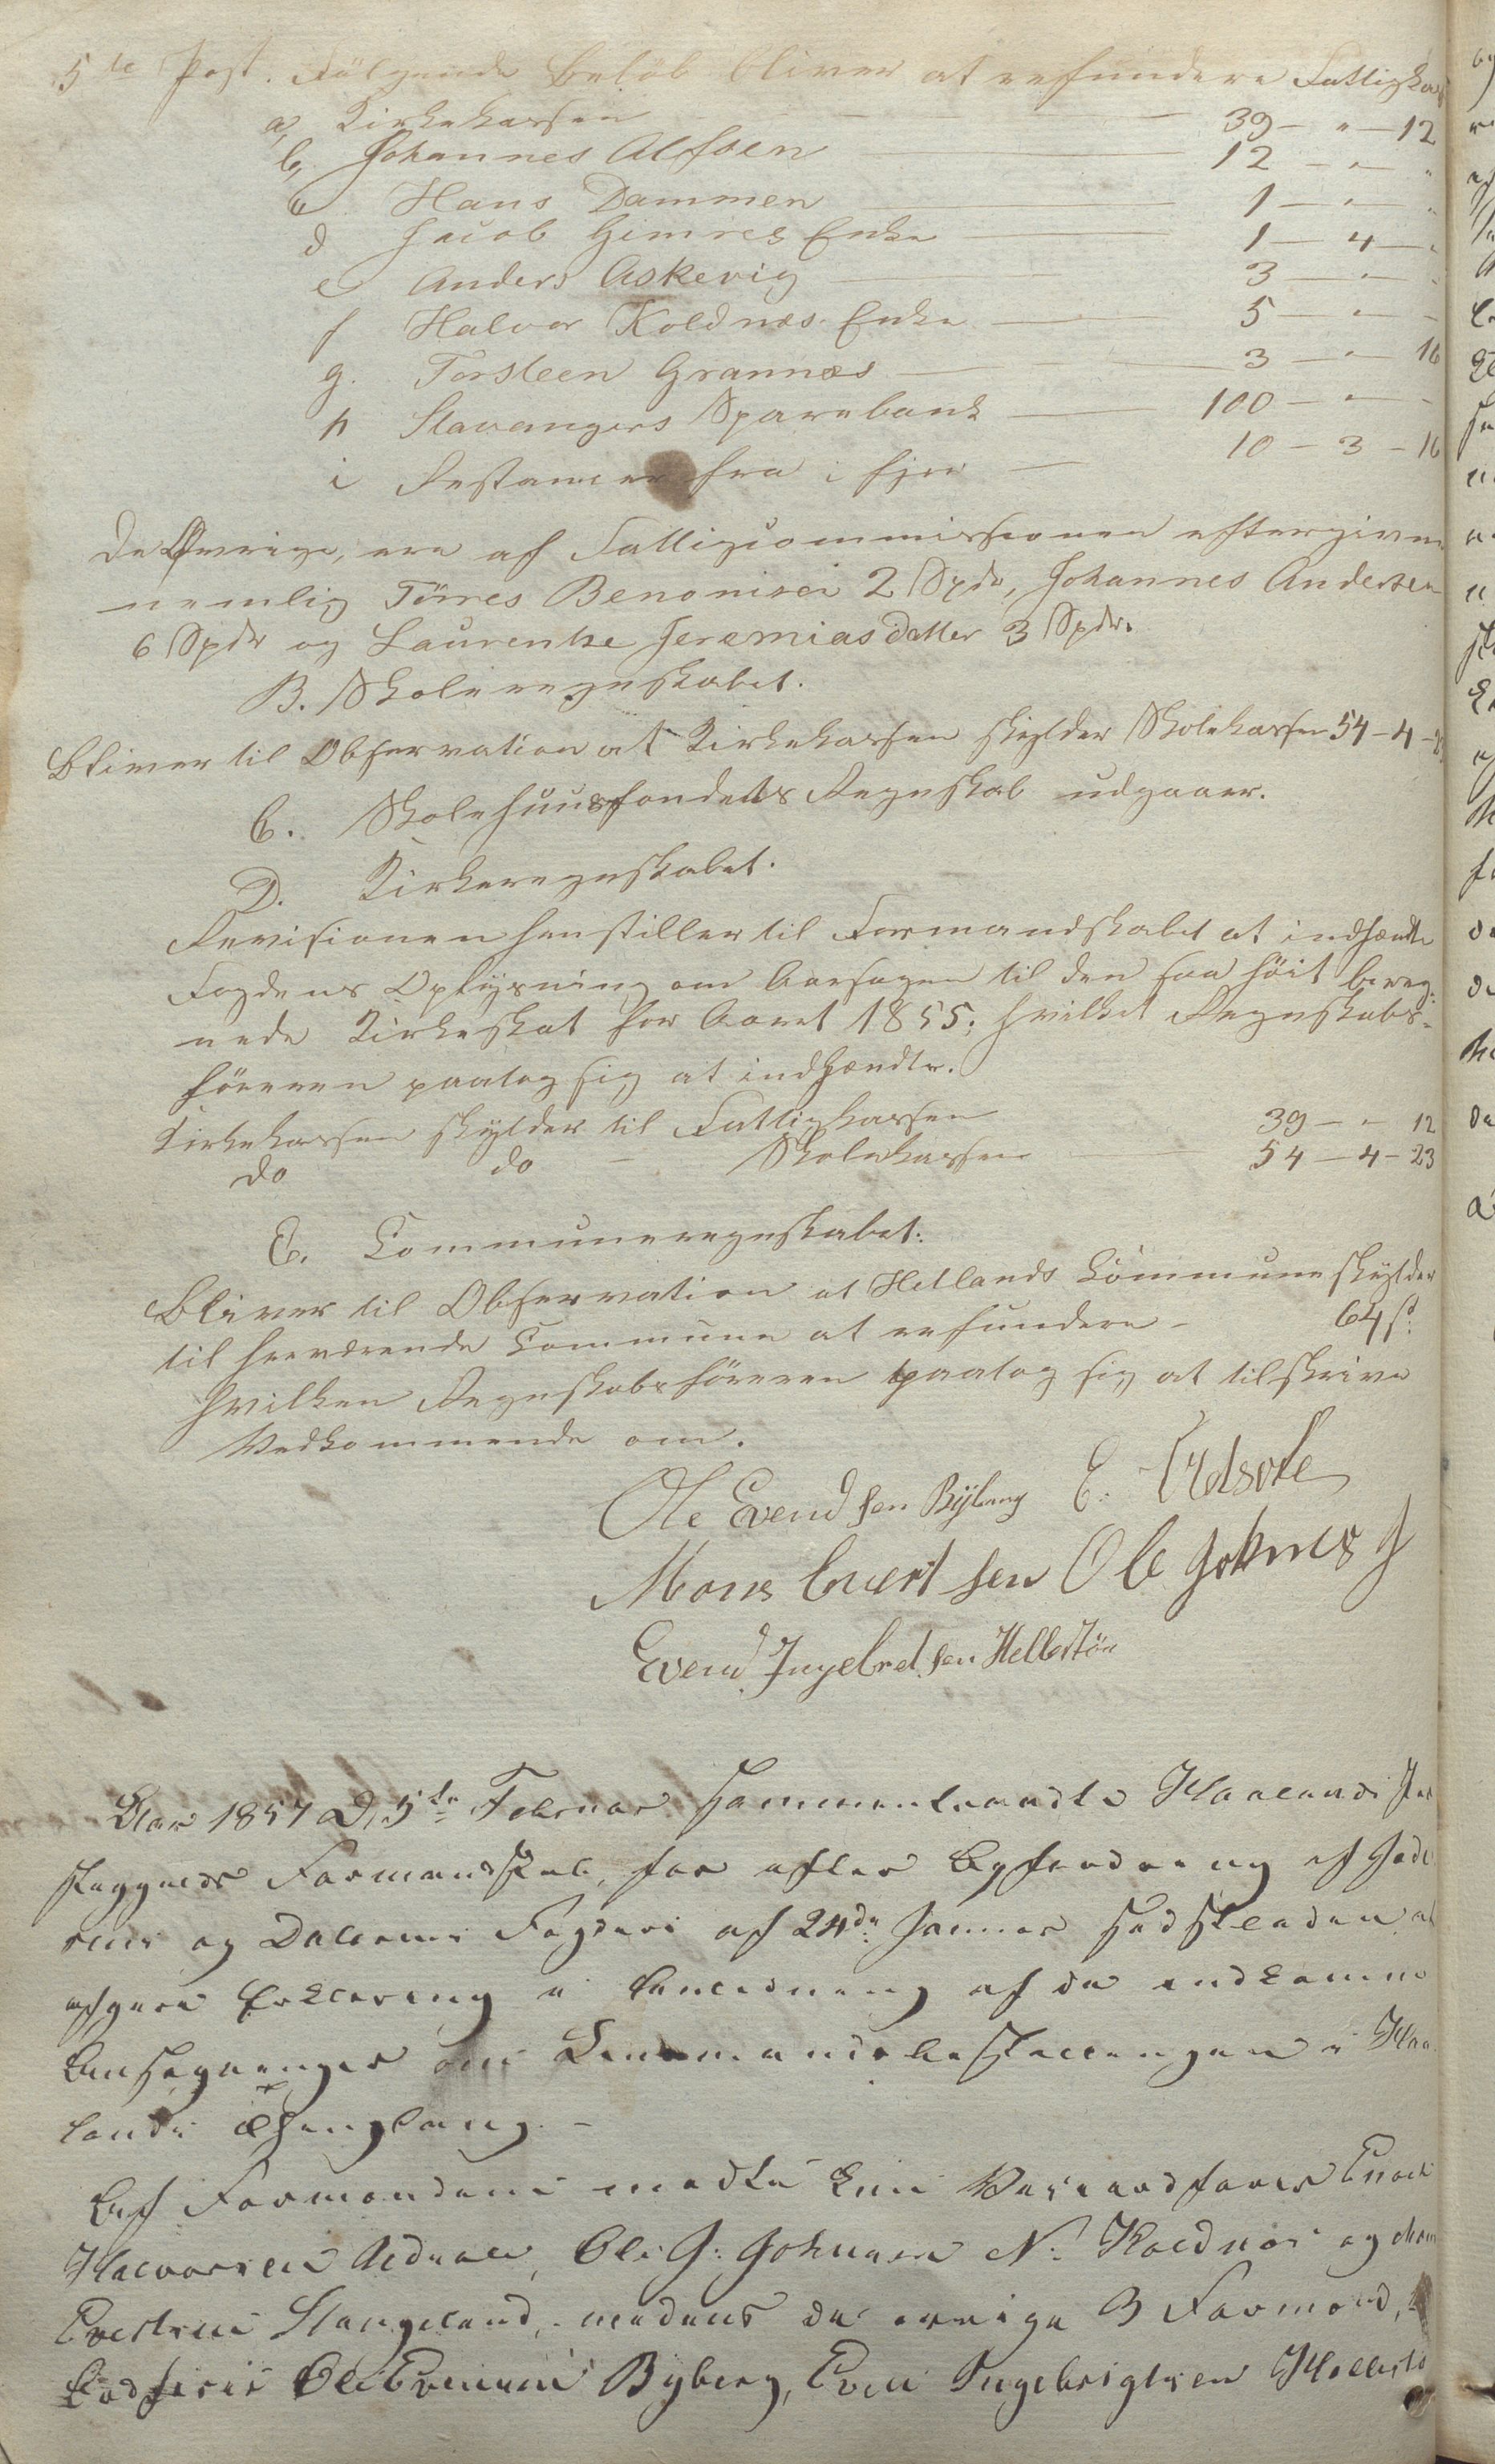 5te Post. Følgende Beløb bliver at refundere Fattigkas
a, Kirkekassen — — 39 — " — 12
b, Johannes Alfsen — 12 — " — "
c Hans Dammen — 1 — " — "
d Jacob Gimres Enke — 1 — 4 — "
e Anders Askevig — 3 — " — "
f Halvor Koldnæs Enke — 5 — " — "
g. Torsteen Grannæs — 3 — " — 16
h Stavangers Sparebank — 100 — " — "
i Restancer fra i fjor — 10 — 3 — 16
De Øvrige, ere af Fattigcommissionen eftergivne
nemlig Törres Benonisen 2 Spd, Johannes Andersen
6 Spdr og Laurentze Jeremiasdatter 3 Spdr.
B. Skoleregnskabet.
Bliver til Observation at Kirkekassen skylder Skolekassen 54 – 4 – 23
C. Skolehuusfondets Regnskab udgaaer.
D. Kirkeregnskabet.
Revisionen henstiller til Formandskabet at indhændte
Fogdens Oplysning om Aarsagen til den saa höit bereg-
nede Kirkeskat for Aaret 1855. hvilket Regnskabs-
föreren paatog sig at indhændte.
Kirkekassen skylder til Fattigkassen 39 — " — 12
do do — Skolekassen — 54 — 4 — 23
E. Communeregnskabet.
Bliver til Observation at Hetlands Commune skylder
til herværende Commune at refundere – 64 s.
hvilken Regnskabsföreren paatog sig at tilskrive
Vedkommende om.
Ole Evendsen Byberg E.
Mons Evertsen Ole Johnes J
Evend Ingebretsen Hellestöe
Aar 1857 D. 5te Februar sammentraadte Haalands Præ
stegjelds Formandskab, for efter Opfordring af Jæde
rens og Dalernes Fogderi af 24de Januar sidstleden at
afgive Erklæring i Anledning af de indkomne
Ansøgninger om Lensmandsbestillingen i Haa
lands Thinglaug. –
Af Formændene mødte kun Varaordfører Enoch
Halvorsen, Ole J: Johnsen N: Koldnæs og Mons
Evertsen Stangeland, medens de øvrige 3 Formænd,
Ordfører Ole Evensen Byberg, Even Ingebrigtsen Hellestø